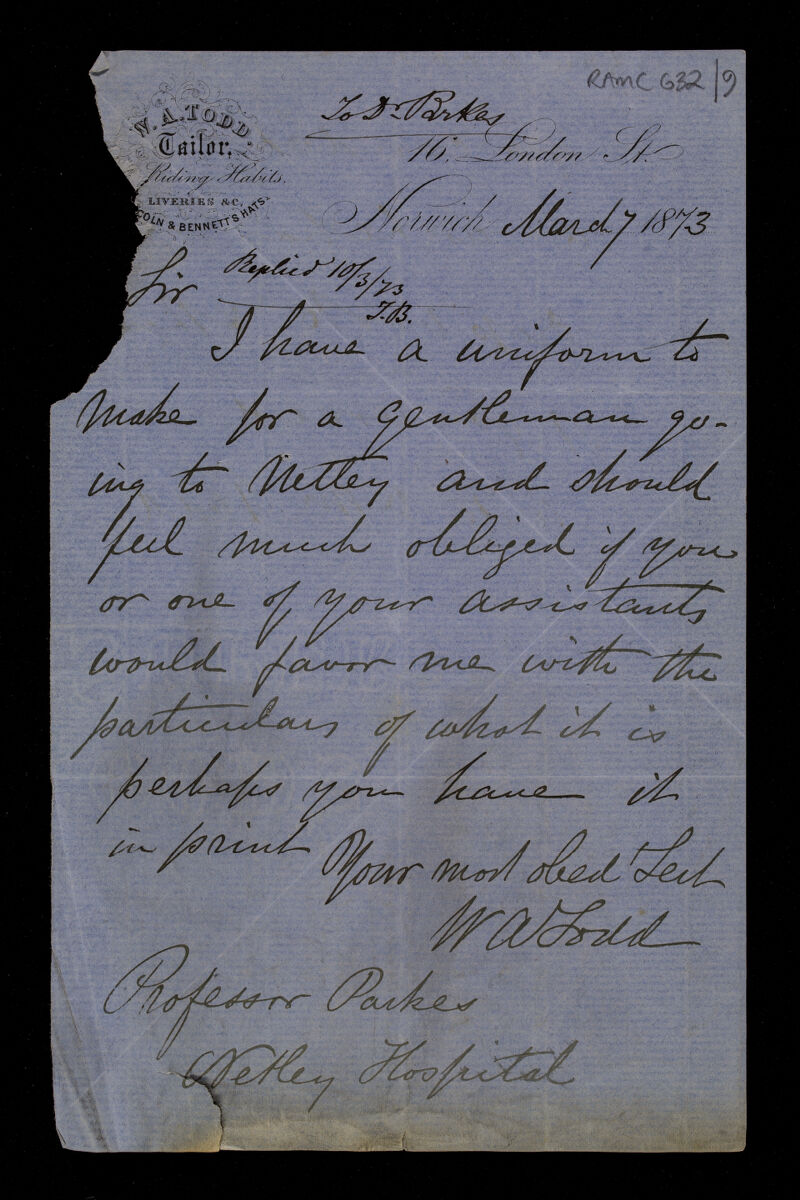 RAMC 632/9
W. A. TODD
Tailor,
Riding Habits,
LIVERIES &C,
COLN & BENNETT'S HATS.
To Dr Parkes
16, London St.
Norwich March 7 1873
Replied 10/3/73
T.B.
Sir
I have a uniform to
make for a gentleman go-
ing to Netley and should
feel much obliged if you
or one of your assistants
would favor me with the
particulars of what it is
perhaps you have it
in print
Your most obed't Sert
W A Todd
Professor Parkes
Netley Hospital